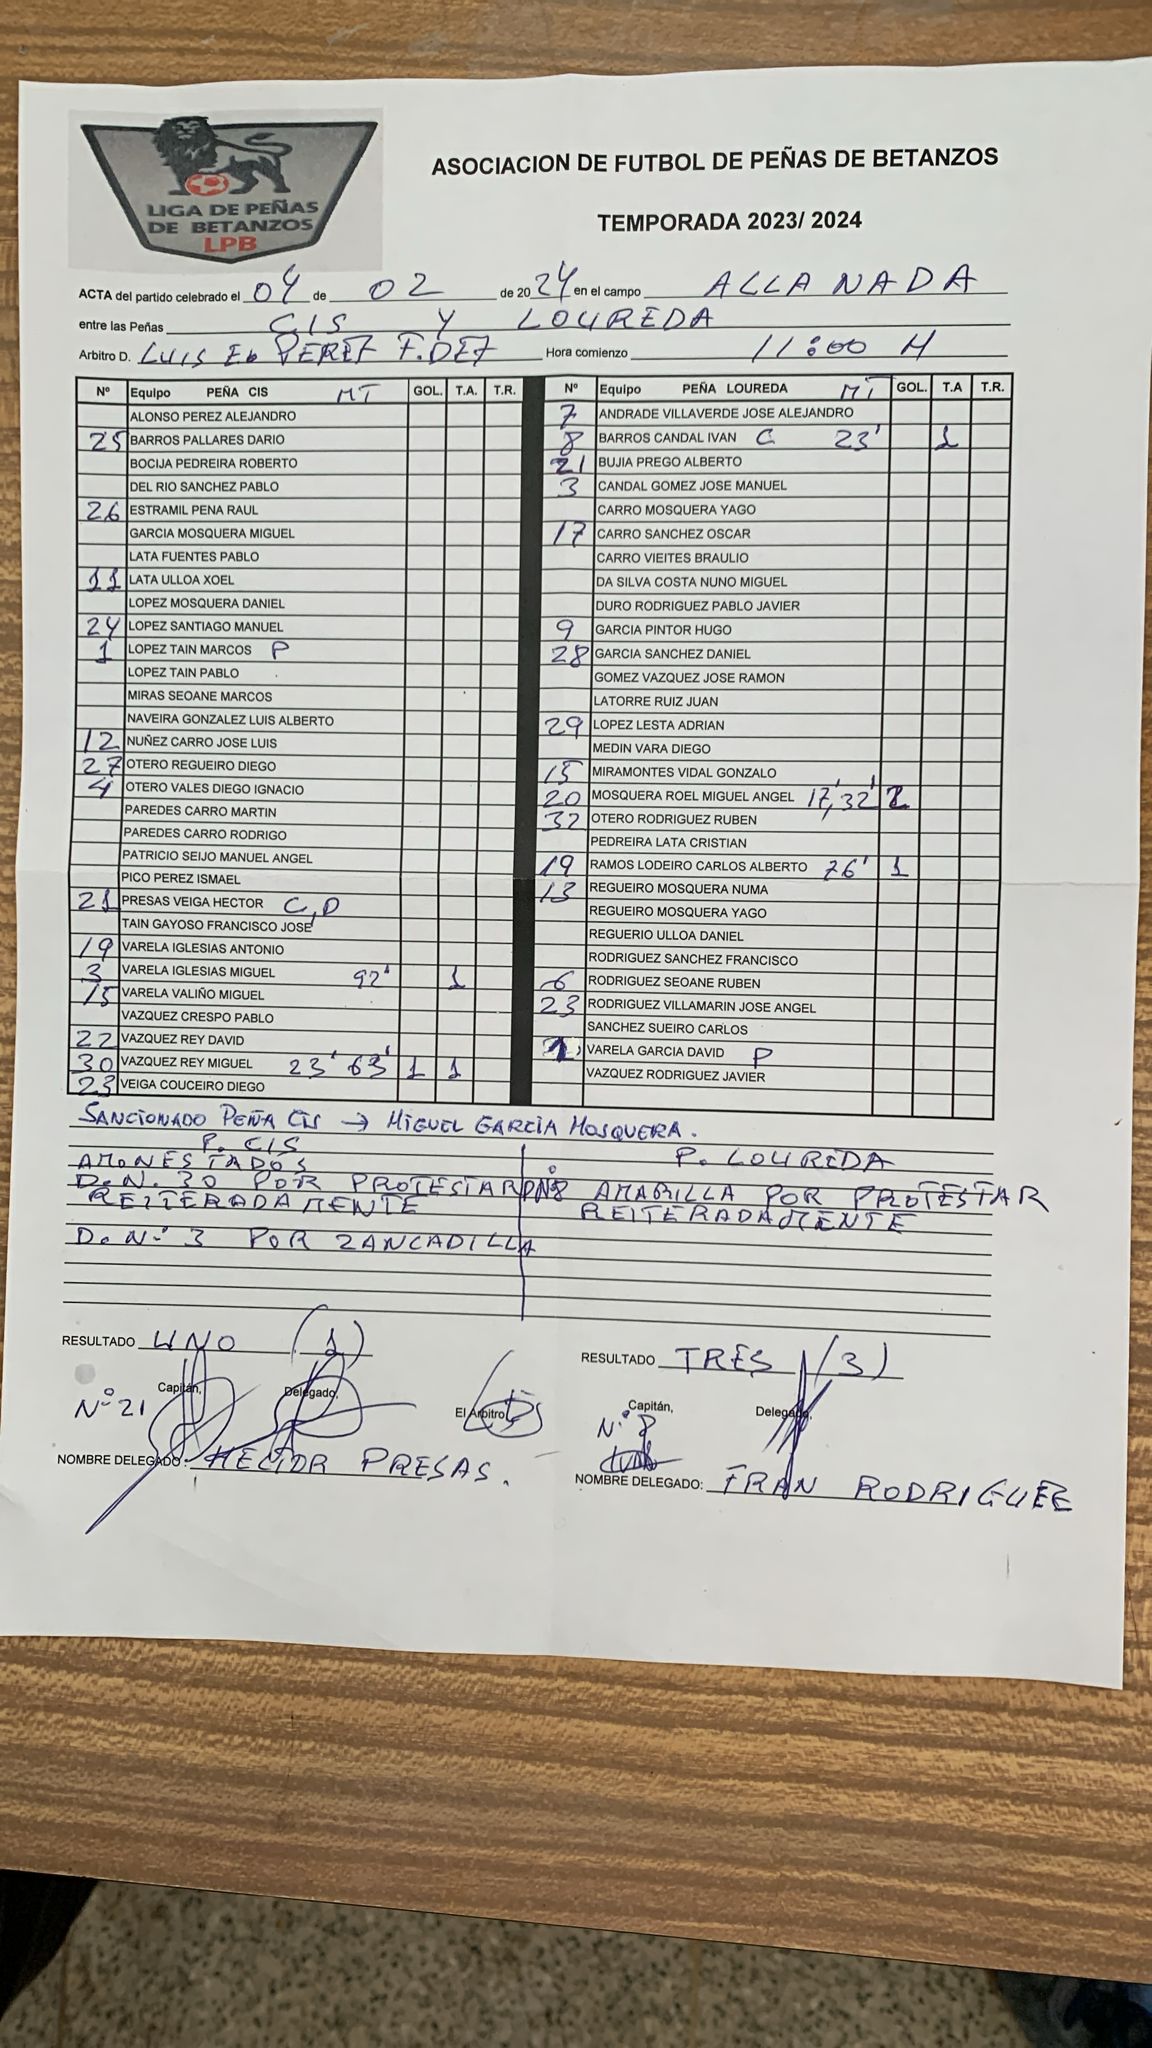 LIGA DE PEÑAS
DE BETANZOS
LPB
ASOCIACION DE FUTBOL DE PEÑAS DE BETANZOS
TEMPORADA 2023/ 2024
ACTA del partido celebrado el 04 de 02 de 2024 en el campo ALLA NADA
entre las Peñas CIS Y LOUREDA
Arbitro D. LUIS Eb PEREZ F.DEZ Hora comienzo 11:00 H
Nº Equipo PEÑA CIS MT GOL. T.A. T.R.
ALONSO PEREZ ALEJANDRO
25 BARROS PALLARES DARIO
BOCIJA PEDREIRA ROBERTO
DEL RIO SANCHEZ PABLO
26 ESTRAMIL PENA RAUL
GARCIA MOSQUERA MIGUEL
LATA FUENTES PABLO
11 LATA ULLOA XOEL
LOPEZ MOSQUERA DANIEL
24 LOPEZ SANTIAGO MANUEL
1 LOPEZ TAIN MARCOS P
LOPEZ TAIN PABLO
MIRAS SEOANE MARCOS
NAVEIRA GONZALEZ LUIS ALBERTO
12 NUÑEZ CARRO JOSE LUIS
27 OTERO REGUEIRO DIEGO
4 OTERO VALES DIEGO IGNACIO
PAREDES CARRO MARTIN
PAREDES CARRO RODRIGO
PATRICIO SEIJO MANUEL ANGEL
PICO PEREZ ISMAEL
21 PRESAS VEIGA HECTOR C,D
TAIN GAYOSO FRANCISCO JOSE
19 VARELA IGLESIAS ANTONIO
3 VARELA IGLESIAS MIGUEL 92' 1
15 VARELA VALIÑO MIGUEL
VAZQUEZ CRESPO PABLO
22 VAZQUEZ REY DAVID
30 VAZQUEZ REY MIGUEL 23' 63' 1 1
23 VEIGA COUCEIRO DIEGO
Nº Equipo PEÑA LOUREDA MT GOL. T.A T.R.
7 ANDRADE VILLAVERDE JOSE ALEJANDRO
8 BARROS CANDAL IVAN C 23' 1
21 BUJIA PREGO ALBERTO
3 CANDAL GOMEZ JOSE MANUEL
CARRO MOSQUERA YAGO
17 CARRO SANCHEZ OSCAR
CARRO VIEITES BRAULIO
DA SILVA COSTA NUNO MIGUEL
DURO RODRIGUEZ PABLO JAVIER
9 GARCIA PINTOR HUGO
28 GARCIA SANCHEZ DANIEL
GOMEZ VAZQUEZ JOSE RAMON
LATORRE RUIZ JUAN
29 LOPEZ LESTA ADRIAN
MEDIN VARA DIEGO
15 MIRAMONTES VIDAL GONZALO
20 MOSQUERA ROEL MIGUEL ANGEL 17', 32' 2
32 OTERO RODRIGUEZ RUBEN
PEDREIRA LATA CRISTIAN
19 RAMOS LODEIRO CARLOS ALBERTO 76' 1
13 REGUEIRO MOSQUERA NUMA
REGUEIRO MOSQUERA YAGO
REGUERIO ULLOA DANIEL
RODRIGUEZ SANCHEZ FRANCISCO
6 RODRIGUEZ SEOANE RUBEN
23 RODRIGUEZ VILLAMARIN JOSE ANGEL
SANCHEZ SUEIRO CARLOS
VARELA GARCIA DAVID P
VAZQUEZ RODRIGUEZ JAVIER
SANCIONADO PEÑA CIS → MIGUEL GARCIA MOSQUERA.
P. CIS
AMONESTADOS
D.N. 30 POR PROTESTAR
REITERADAMENTE
D. Nº 3 POR ZANCADILLA
P. LOUREDA
DNº8 AMARILLA POR PROTESTAR
REITERADAMENTE
RESULTADO UNO (1)
RESULTADO TRES (3)
Nº21 Capitán, Delegado, El Arbitro
Capitán, Delegado,
Nº 8
NOMBRE DELEGADO: HECTOR PRESAS.
NOMBRE DELEGADO: FRAN RODRIGUEZ